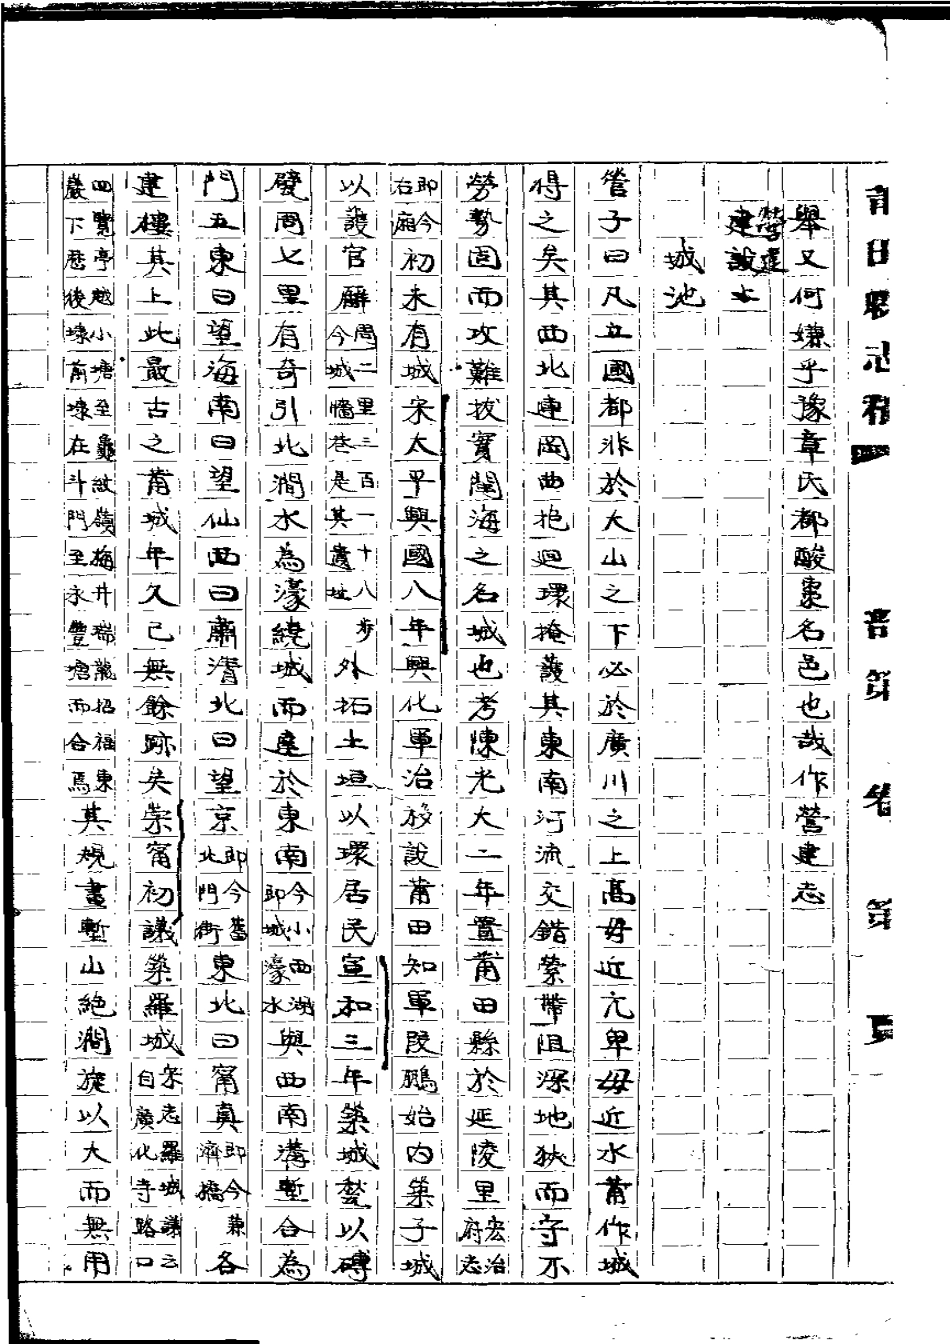 莆田縣志稿 普第 卷 第 頁
舉又何嫌乎豫章氏都酸棗名邑也哉作營建志
建設上
城池
管子曰凡立國都非於大山之下必於廣川之上高毋近亢卑毋近水莆作城
得之矣其西北連岡曲抱迴環掩護其東南河流交錯縈帶阻深地狹而守不
勞勢固而攻難拔實閩海之名城也考陳光大二年置莆田縣於延陵里宏治府志
即今右廂初未有城宋太平興國八年興化軍治移設莆田知軍段鵬始內築子城
以護官廨周二里三百一十八步今城牆巷是其遺址外拓土垣以環居民宣和三年築城甃以磚
甓周七里有奇引北澗水為濠繞城而達於東南今小西湖即城濠水與西南溝塹合為
門五東曰望海南曰望仙西曰肅清北曰望京即今舊北門街東北曰甯真即今濟橋兼各
建樓其上此最古之莆城年久已無餘跡矣崇甯初議築羅城宋志羅城議云自廣化寺路口
四覽亭越小塘至龜紋嶺梅井瑞龍招福東巖下歷後埭前埭在斗門至永豐塘而合焉其規畫塹山絕澗旋以大而無用